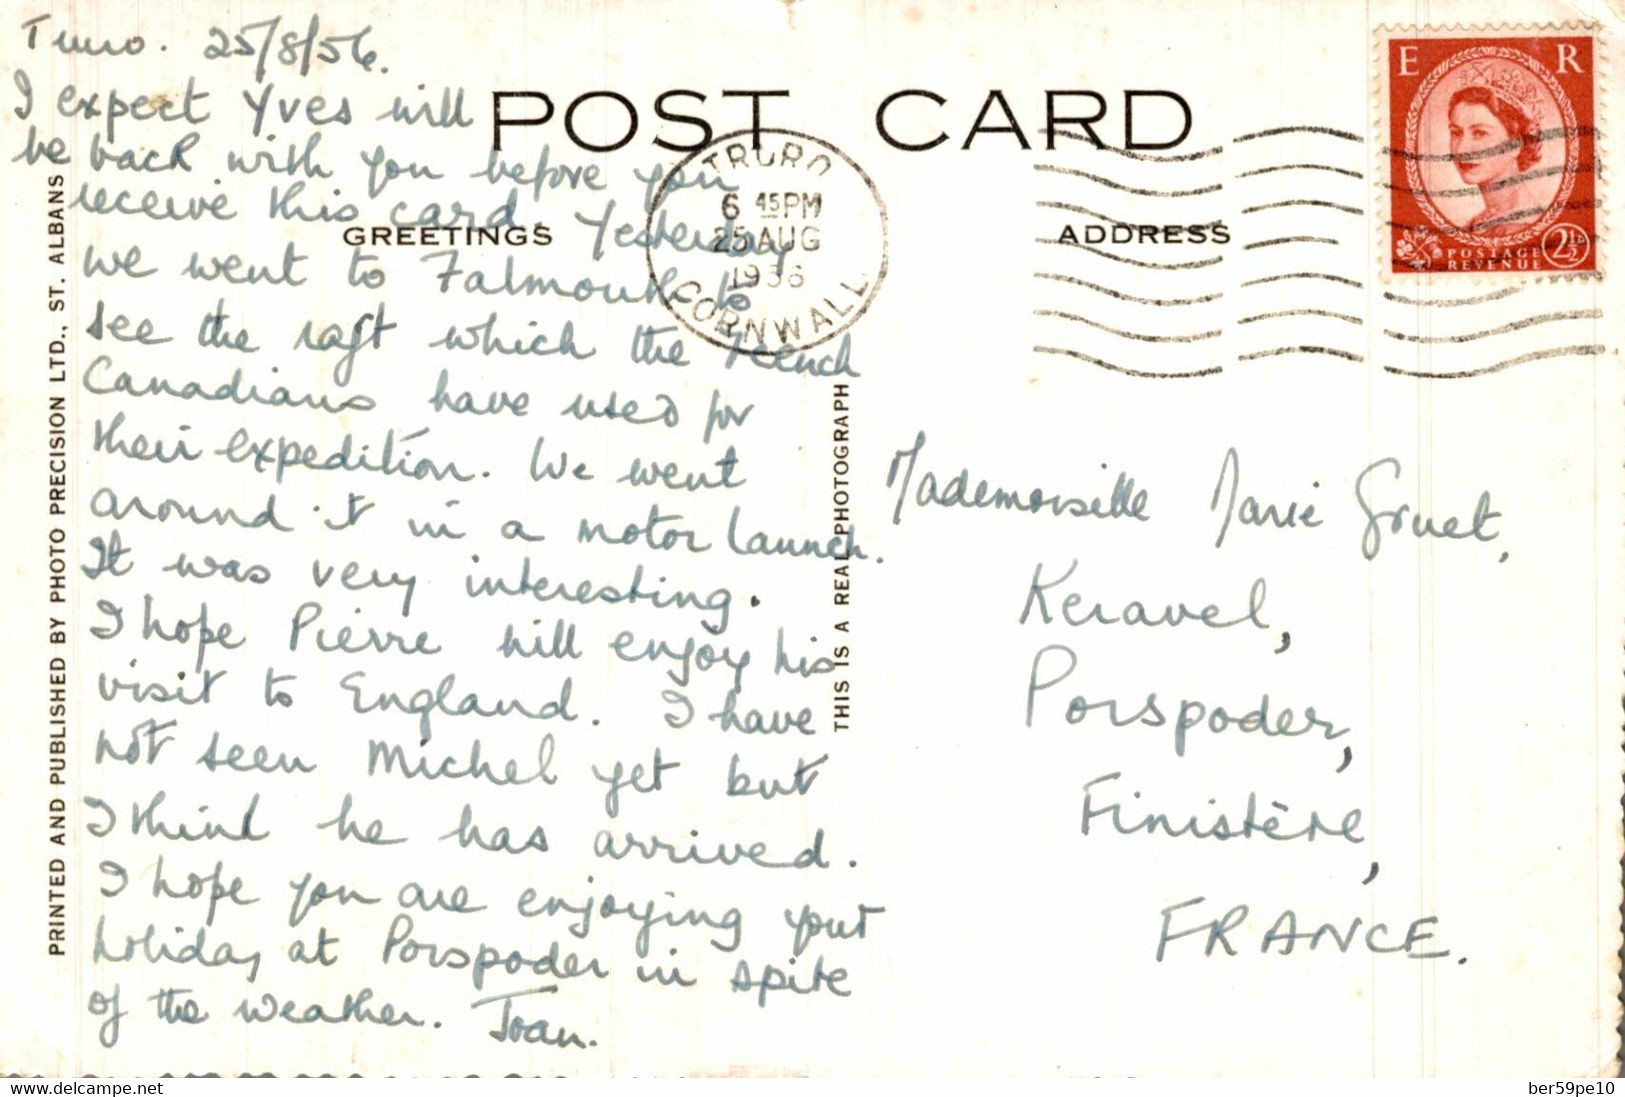 Truro. 25/8/56.
I expect Yves will
be back with you before you
receive this card. Yesterday
we went to Falmouth to
see the raft which the French
Canadians have used for
their expedition. We went
around it in a motor launch.
It was very interesting.
I hope Pierre will enjoy his
visit to England. I have
not seen Michel yet but
I think he has arrived.
I hope you are enjoying your
holiday at Porspoder in spite
of the weather. Joan.
POST CARD
GREETINGS
ADDRESS
TRURO
6 45PM
25 AUG
1956
CORNWALL
E R
POSTAGE
REVENUE
2½D
Mademoiselle Marie Gruet,
Keravel,
Porspoder,
Finistère,
FRANCE.
PRINTED AND PUBLISHED BY PHOTO PRECISION LTD., ST. ALBANS
THIS IS A REAL PHOTOGRAPH
www.delcampe.net
ber59pe10